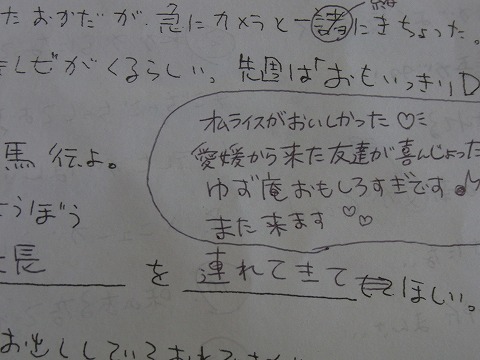 たおかだが、急にカメラと一諸にきちょった。
緒
がくるらしい。先週は「おもいっきりD
オムライスがおいしかった♡
愛媛から来た友達が喜んじょった
ゆず庵おもしろすぎです♪
また来ます♡♡
馬伝よ。
うぼう
長を連れてきてほしい。